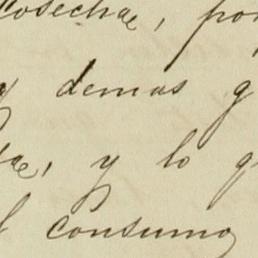 Cosechae, por
y demas g
ae, y lo q
l consumo